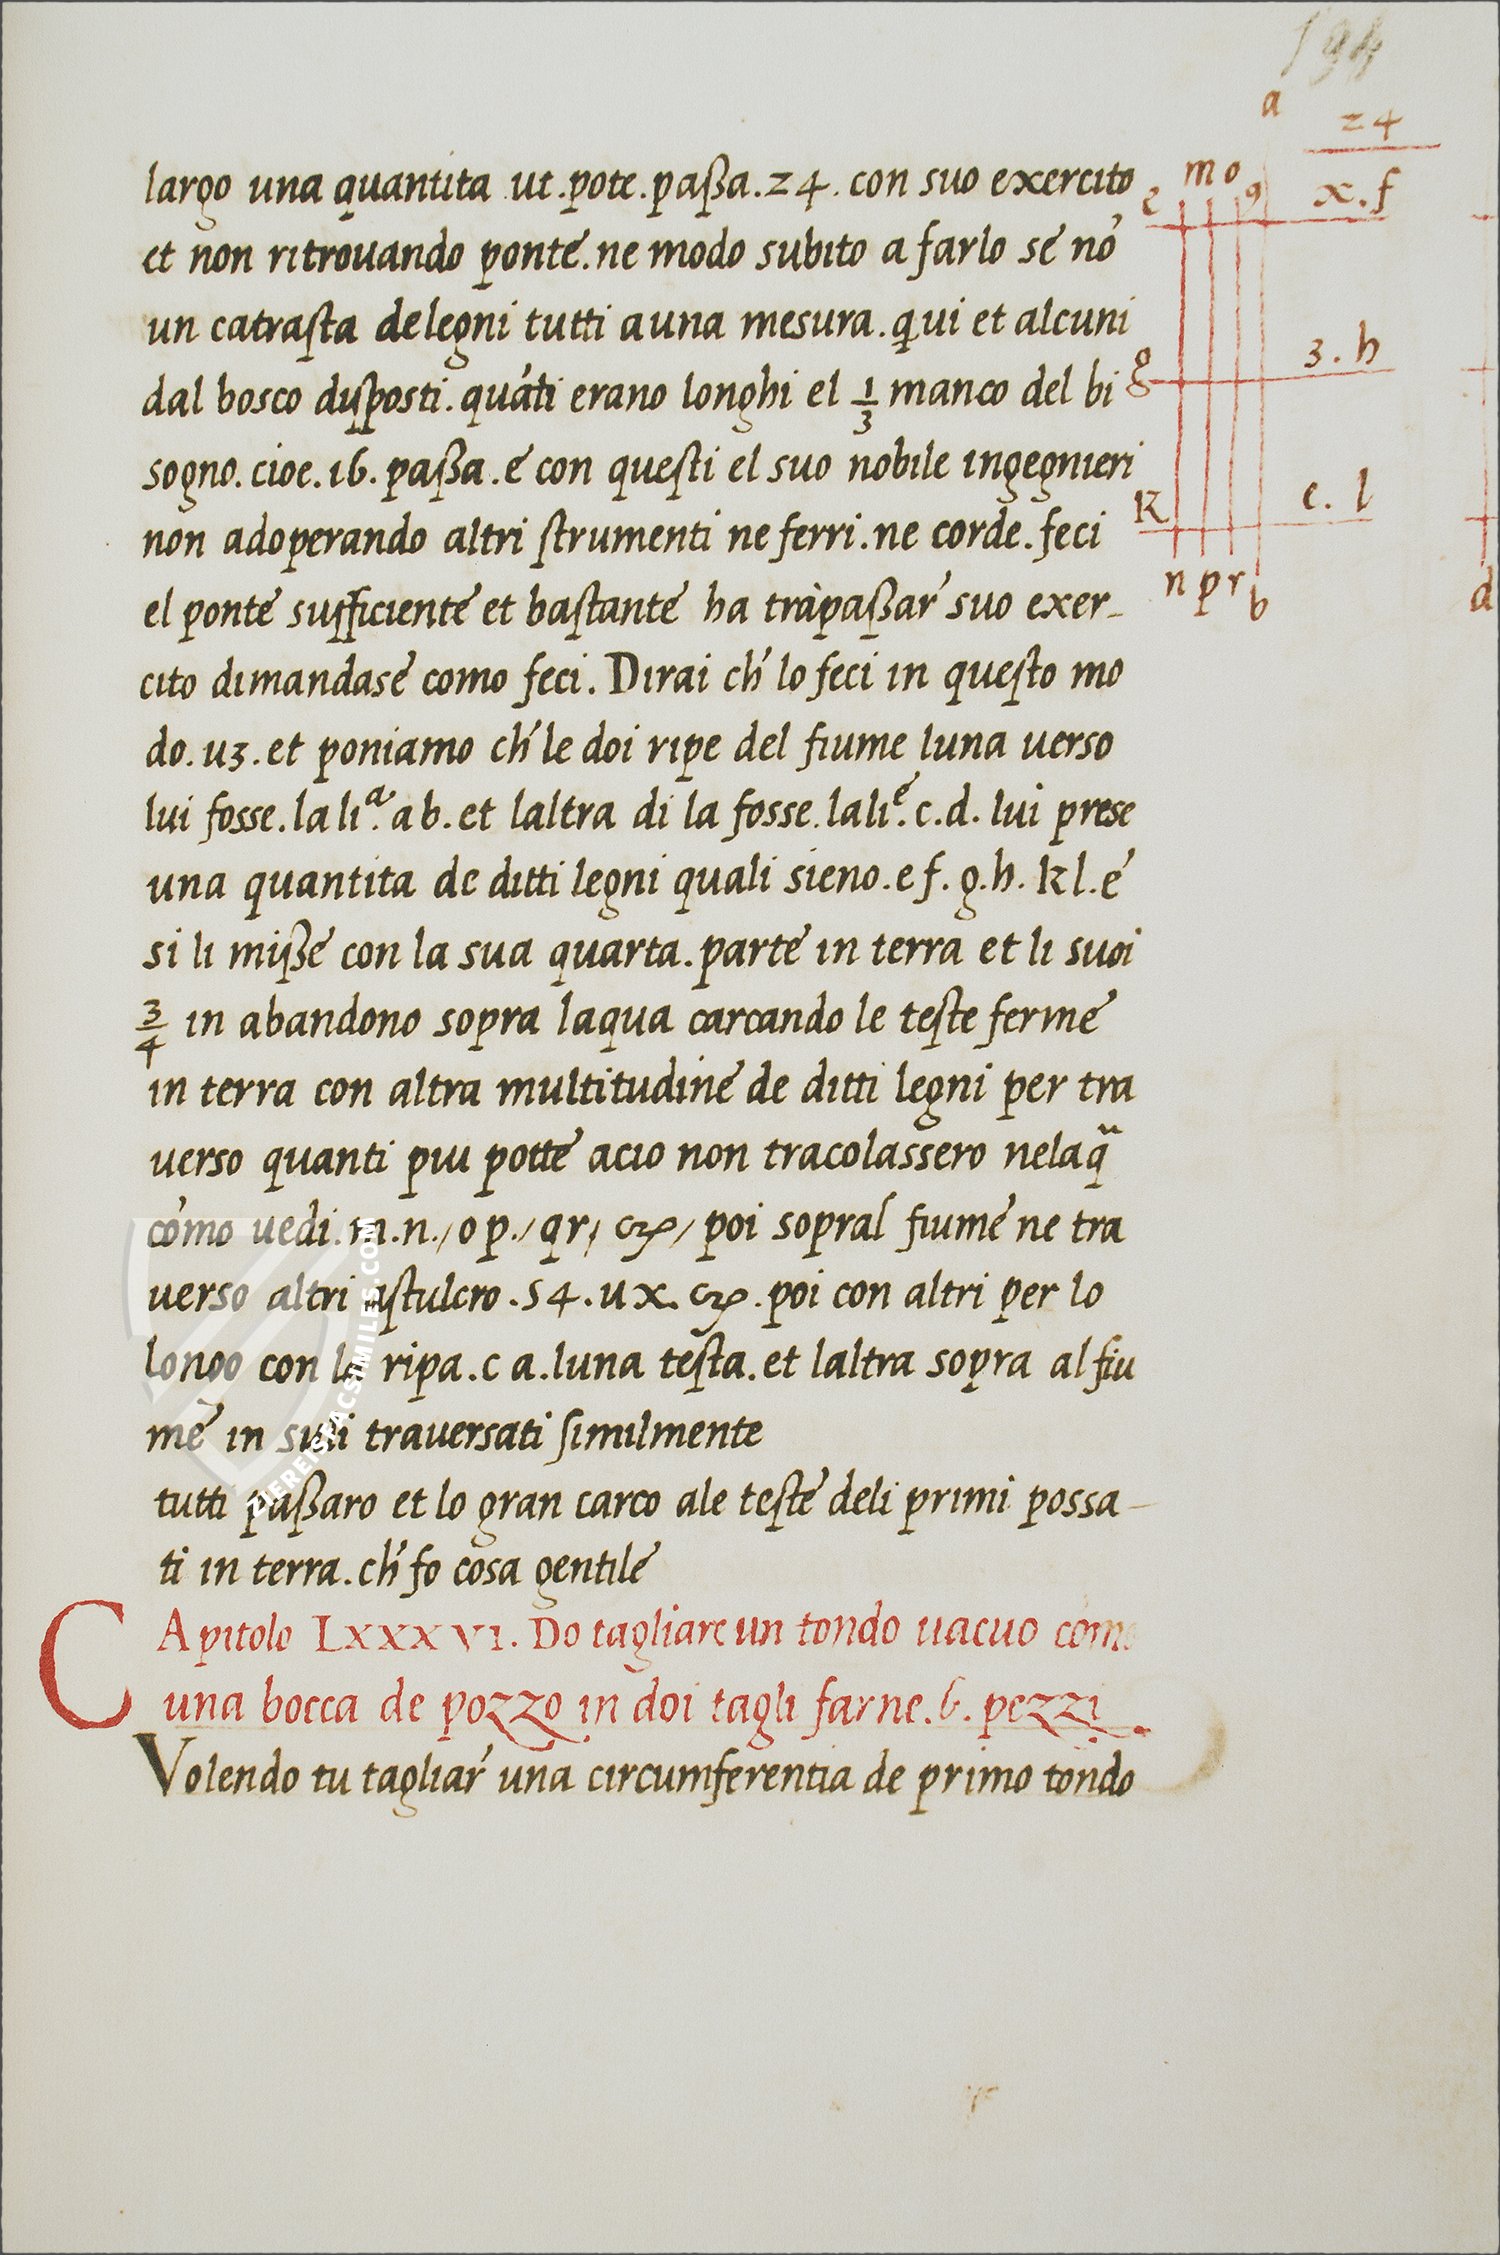 194
a
24
m o
e q x. f
g 3. h
K c. l
n p r b d
largo una quantita ut.pote.paßa.24.con suo exercito
et non ritrouando ponte.ne modo subito a farlo se nō
un catrasta de legni tutti a una mesura.qui et alcuni
dal bosco disposti.quāti erano longhi el 1/3 manco del bi
sogno.cioe.16.paßa.e con questi el suo nobile ingegnieri
non adoperando altri strumenti ne ferri.ne corde.feci
el ponte sufficiente et bastante ha trapaßar suo exer-
cito dimandase como feci. Dirai ch' lo feci in questo mo
do.uʒ.et poniamo ch' le doi ripe del fiume luna uerso
lui fosse.la liª.ab.et laltra di la fosse.la liᵉ.c.d. lui prese
una quantita de ditti legni quali sieno.e f. g.h. kl.e
si li miße con la sua quarta.parte in terra et li suoi
3/4 in abandono sopra laqua carcando le teste ferme
in terra con altra multitudine de ditti legni per tra
uerso quanti piu potte acio non tracolassero nelaqª
cōmo uedi.m.n./op./qr/ /poi sopral fiume ne tra
uerso altri .s4.ux. .poi con altri per lo
longo con la ripa.c a.luna testa.et laltra sopra al fiu
me in suli trauersati similmente
tutti paßaro et lo gran carco ale teste deli primi possa-
ti in terra.ch' fo cosa gentile
CApitolo LXXXVI. Do tagliare un tondo uacuo como
una bocca de pozzo in doi tagli farne.6. pezzi
Volendo tu tagliar' una circumferentia de primo tondo
ZIEREISFACSIMILES.COM